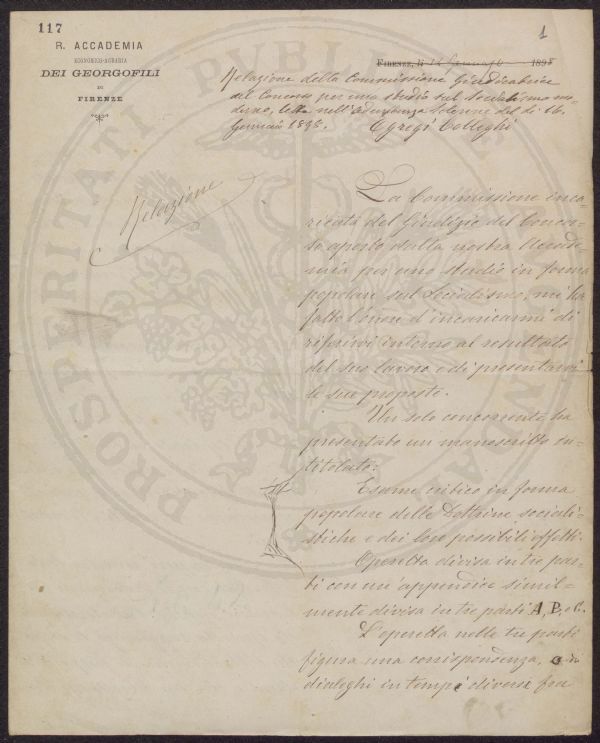 117
1
R. ACCADEMIA
ECONOMICO-AGRARIA
DEI GEORGOFILI
DI
FIRENZE
FIRENZE, li 16 Gennajo 1898
Relazione della Commissione Giudicatrice
del Concorso per uno studio sul Socialismo mo-
derno, letta nell'Adunanza solenne del dì 16.
Gennaio 1898.
Egregi Colleghi
Relazione
La Commissione inca-
ricata del Giudizio del Concor-
so aperto dalla nostra Accade-
mia per uno studio in forma
popolare sul Socialismo, mi ha
fatto l'onore d'incaricarmi di
riferirvi intorno al resultato
del suo lavoro e di presentarvi
le sue proposte.
Un solo concorrente ha
presentato un manoscritto in-
titolato:
Esame critico in forma
popolare delle Dottrine sociali-
stiche e dei loro possibili effetti.
Operetta divisa in tre par-
ti con un'appendice simil-
mente divisa in tre parti A, B, e C.
L'operetta nelle tre parti
figura una corrispondenza, o in
dialoghi in tempi diversi fra
PROSPERITATI PUBLICAE